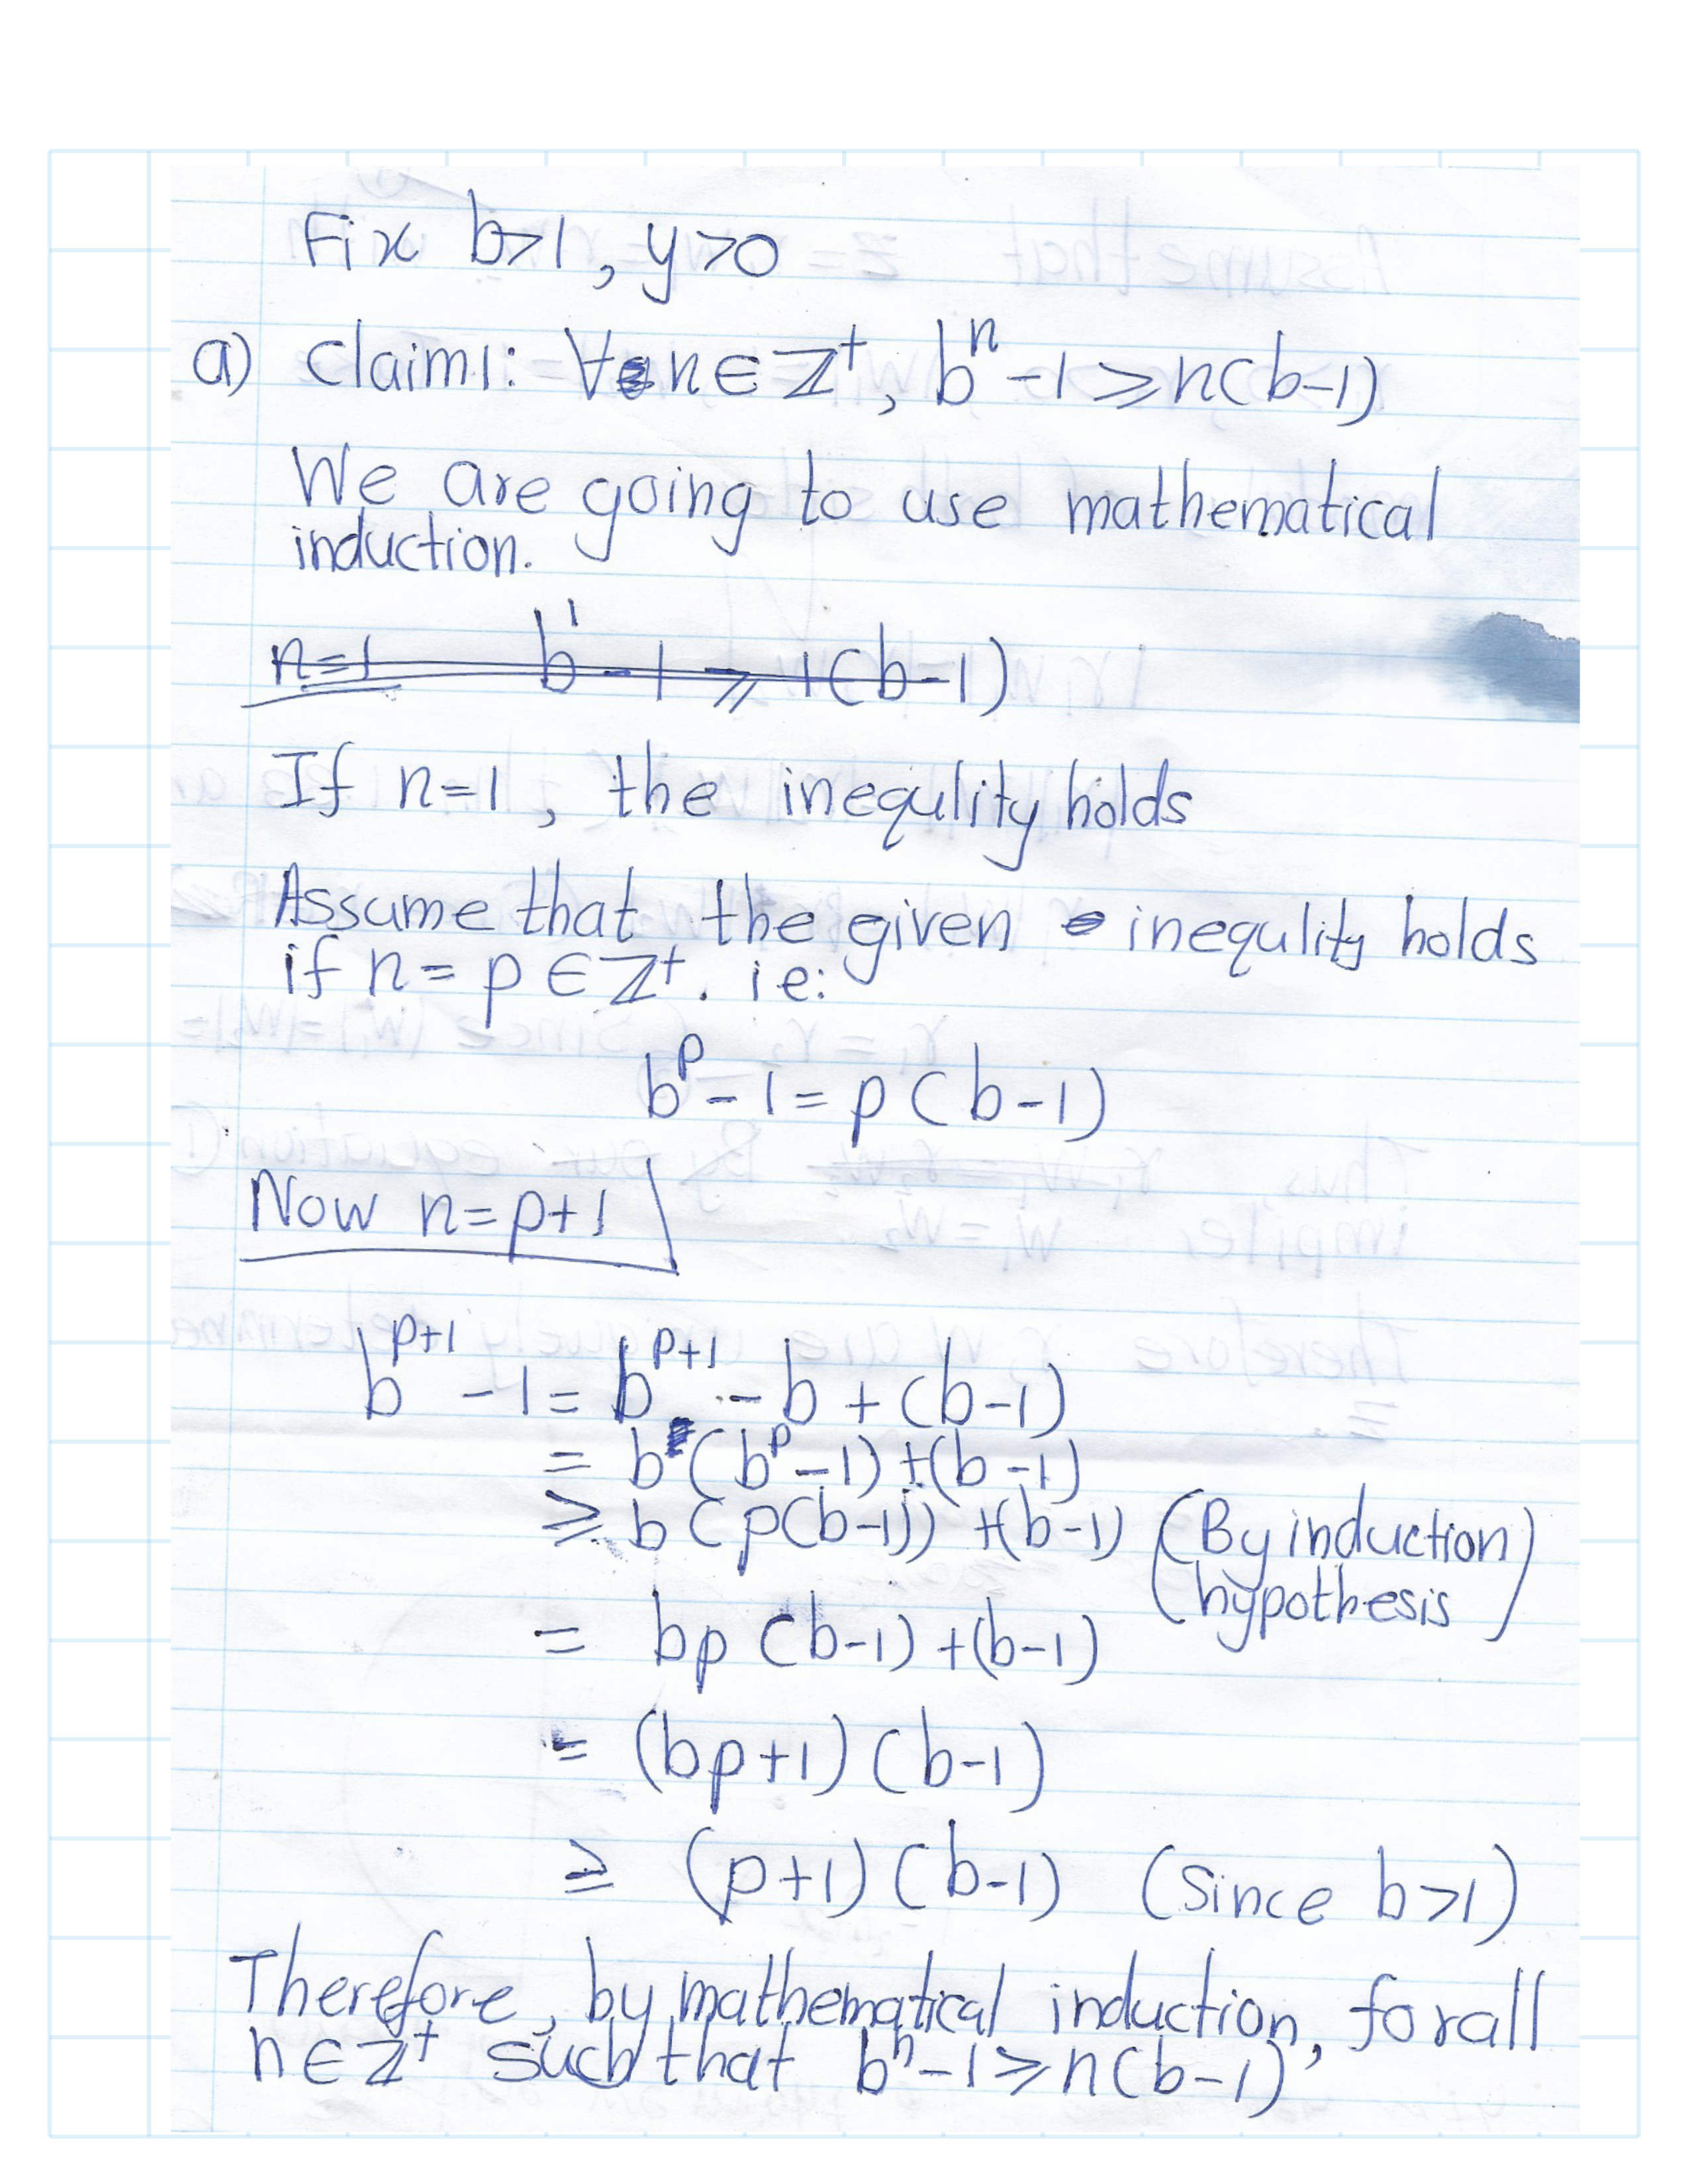 Fix b>1, y>0
a) claim1: ∀n∈ℤ⁺, bⁿ-1⩾n(b-1)
We are going to use mathematical
induction.
n=1 b¹-1⩾1(b-1)
If n=1, the inequlity holds
Assume that the given inequlity holds
if n=p∈ℤ⁺. ie:
bᵖ-1=p(b-1)
Now n=p+1
bᵖ⁺¹-1=bᵖ⁺¹-b+(b-1)
= b(bᵖ-1)+(b-1)
⩾ b(p(b-1))+(b-1) (By induction
hypothesis)
= bp(b-1)+(b-1)
= (bp+1)(b-1)
≥ (p+1)(b-1) (Since b>1)
Therefore, by mathematical induction, for all
n∈ℤ⁺ such that bⁿ-1⩾n(b-1)